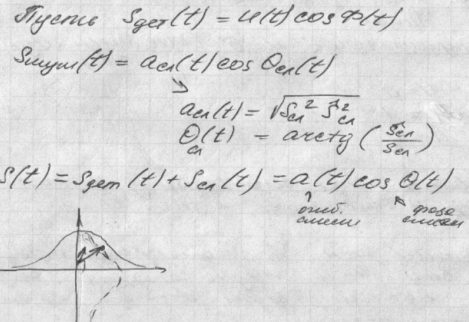 Пусть Sдет(t) = u(t) cos Ф(t)
Sшум(t) = aсл(t) cos Θсл(t)
aсл(t) = √(Sсл² Ŝсл²)
Θсл(t) = arctg (Ŝсл/Sсл)
S(t) = Sдет(t) + Sсл(t) = a(t) cos Θ(t)
огиб. фаза
смеси смеси